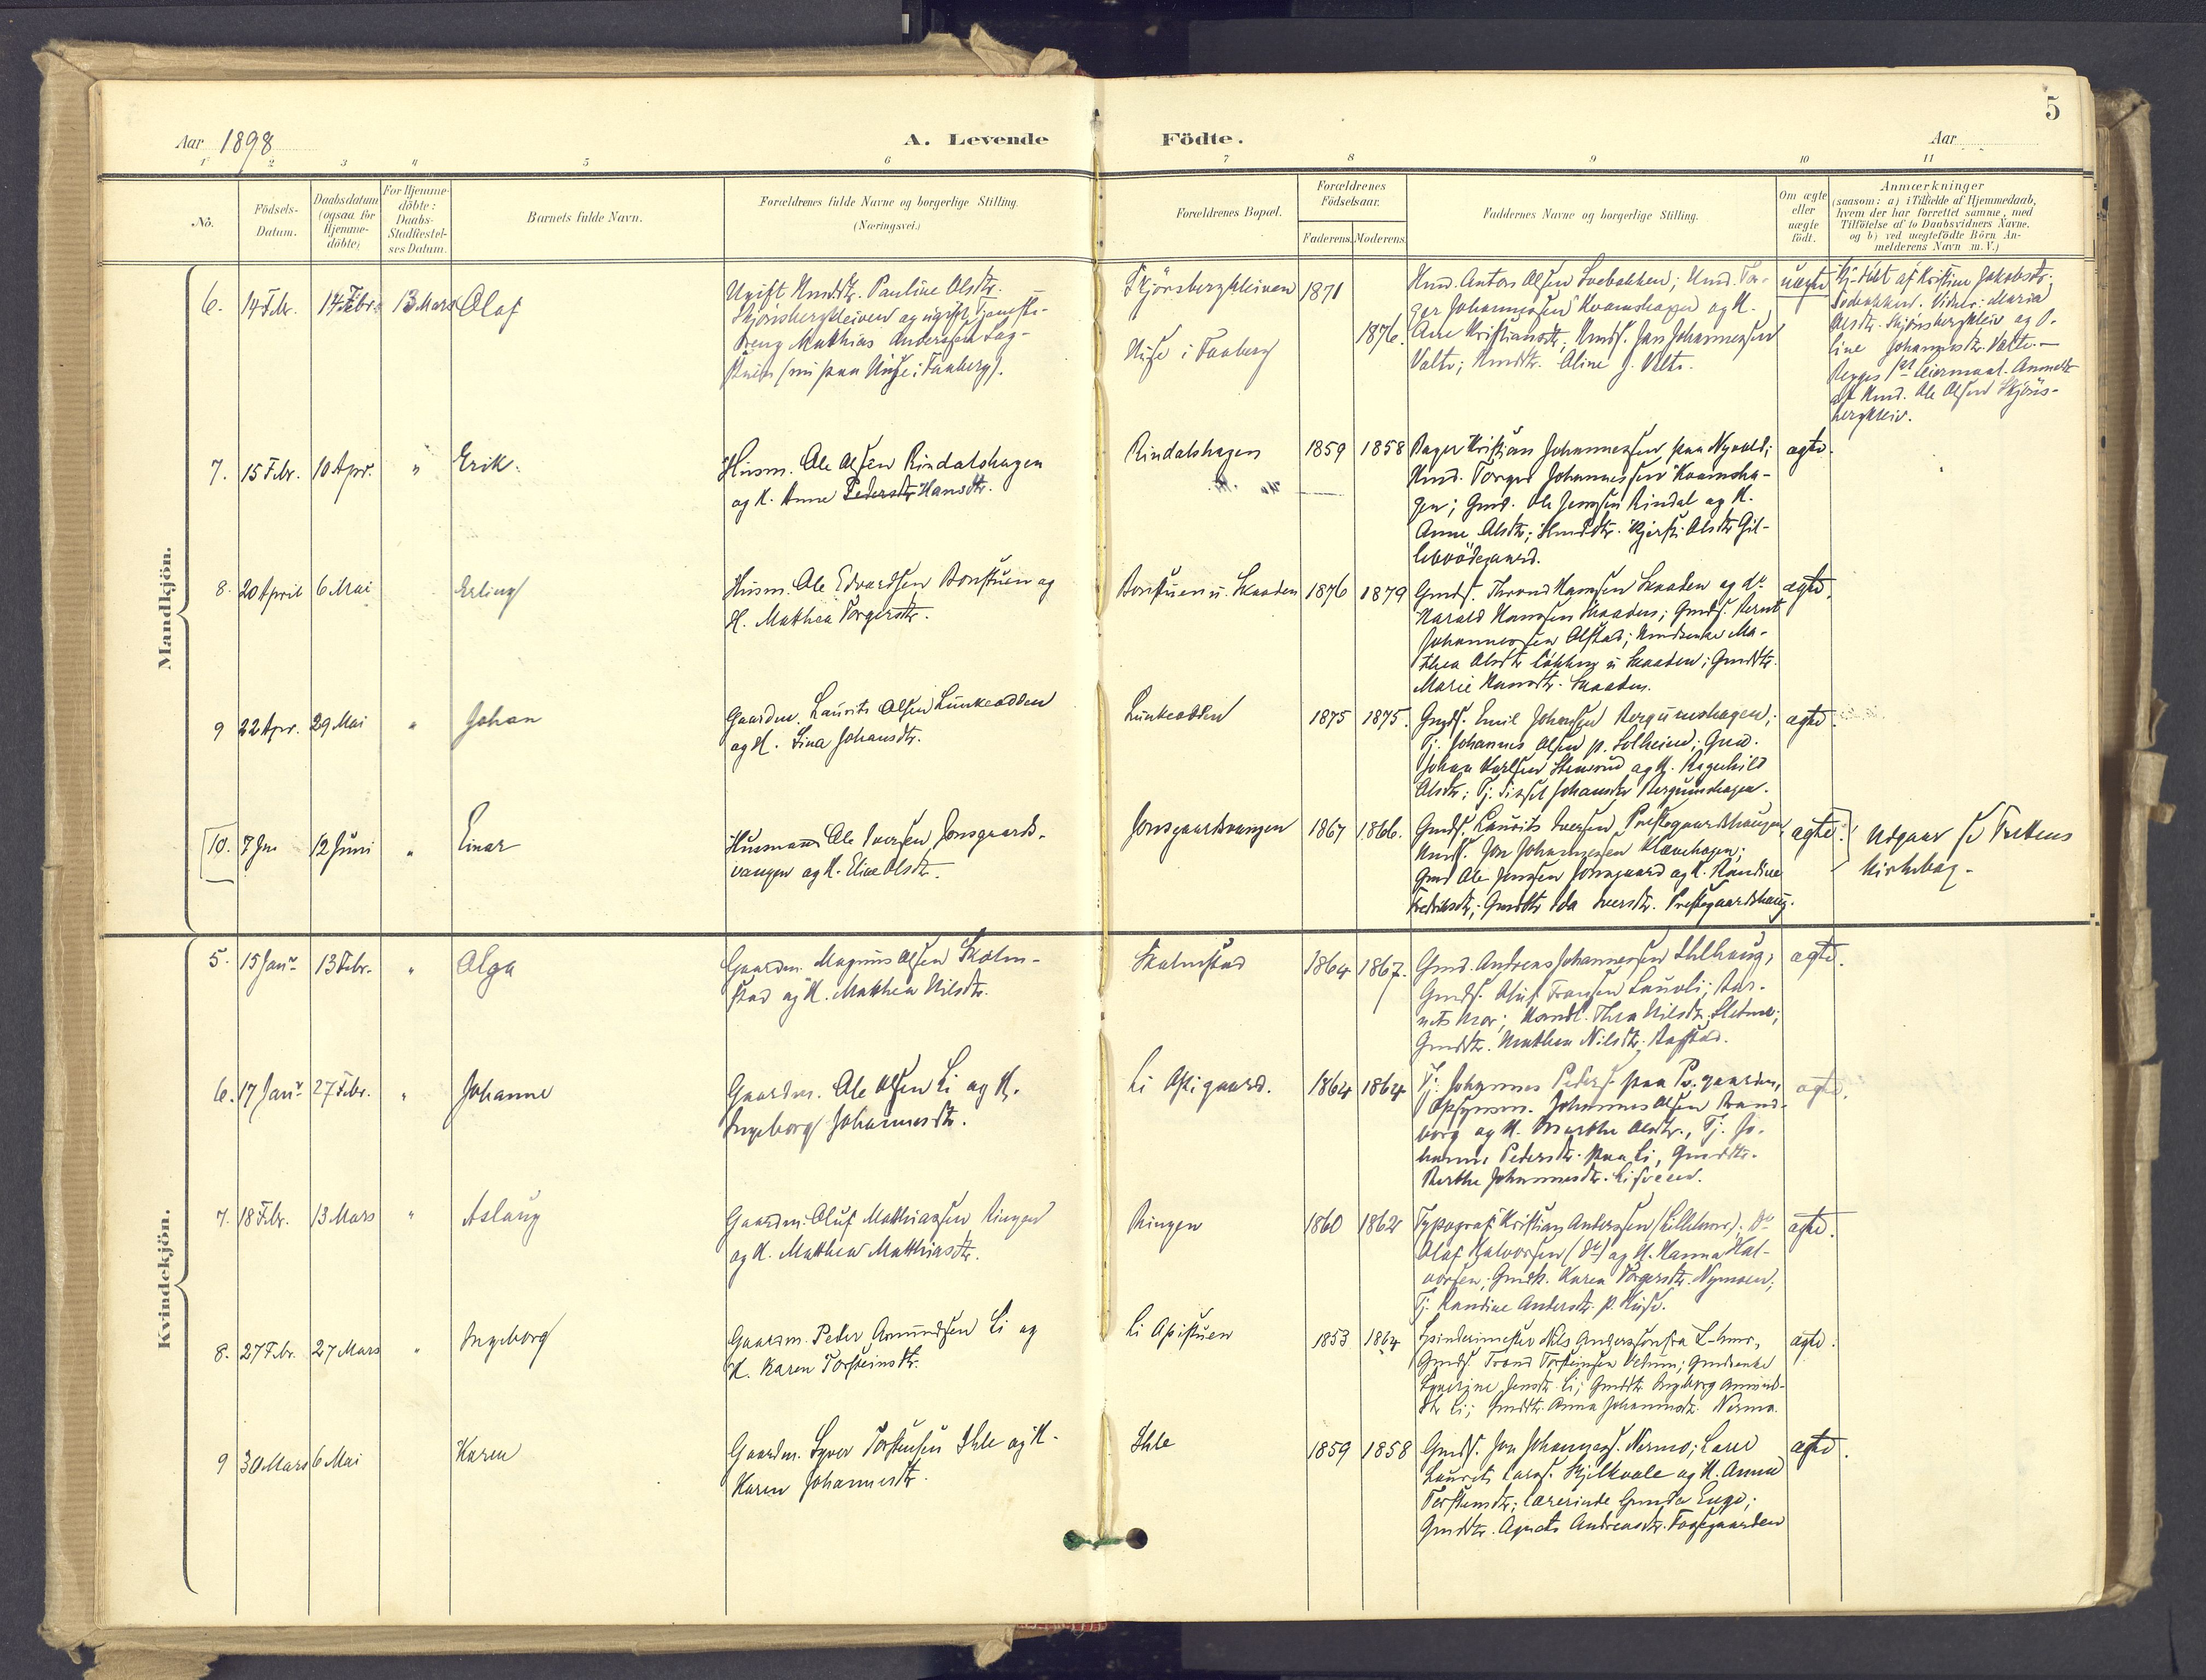 5
Aar 1898
A. Levende Födte.
Aar
1 2 3 4 5 6 7 8 9 10 11
No.
Födsels-
Datum.
Daabsdatum
(ogsaa for
Hjemme-
döbte)
For Hjemme-
döbte:
Daabs-
Stadfæstel-
ses Datum.
Barnets fulde Navn.
Forældrenes fulde Navne og borgerlige Stilling.
(Næringsvei.)
Forældrenes Bopæl.
Forældrenes
Födselsaar.
Faderens. Moderens.
Faddernes Navne og borgerlige Stilling.
Om ægte
eller
uægte
födt.
Anmærkninger
(saasom: a) i Tilfælde af Hjemmedaab,
hvem der har forrettet samme, med
Tilföielse af to Daabsvidners Navne.
og b) ved uægtefödte Börn An-
melderens Navn m. V.)
Mandkjön.
6. 14 Febr. 14 Febr. 13 Mars Olaf
Ugift Pauline Olsdtr.
Skjönsbergkleiven og ugift
Dreng Mathias Anderssen
(nu paa i Faaberg).
Skjönsbergkleiven
i Faaberg
1871
1876.
Anton Olsen
Johannessen Kvamshagen og K.
Ane Kristiansdtr; Jan Johannessen
Aline J.
uægte
Hj. döbt af Kristian Jakobsdtr.
Maria
Olsdtr. Skjönsbergkleiv og O-
line Johannesdtr.
Leiermaal.
af Ole Olsen Skjöns-
bergkleiv.
7. 15 Febr. 10 Apr. " Erik.
Husm. Ole Olsen Rindalshagen
og K. Anne Pedersdtr Hansdtr.
Rindalshagen
1859 1858
Bager Kristian Johannessen paa Nyvold;
Torger Johannessen Kvamsha-
gen; Gmd. Ole Jenssen Rindal og K.
Anne Olsdtr; Kjersti Olsdtr Gil-
lebvödegaard.
ægte.
8. 20 April 6 Mai Erling
Husm. Ole Edvardsen Bonstuen og
H. Mathea Torgersdtr.
Bonstuen u. Skaaden
1876 1879
Gmds. Trond Hanssen Skaaden og do
Harald Hanssen Skaaden; Gmds. Bernt
Johannessen Olstad; Ma-
thea Olsdtr u Skaaden; Gmdtr.
Marie Hansdtr. Skaaden.
ægte.
9 22 Apr. 29 Mai " Johan
Gaardm. Laurits Olsen Lunkeodden
og H. Lina Johansdtr.
Lunkeodden
1875 1875.
Gmds. Emil Johansen Bergumshagen;
Tj. Johannes Olsen p. Solheim; Gmd.
Johan Karlsen Stensrud og K. Ragnhild
Olsdtr; Tj. Sissel Johansdtr Bergumshagen.
ægte.
10. 7 Jan 12 Juni " Einar
Husmand Ole Iversen Jonsgaards-
vangen og K. Eline Olsdtr.
Jonsgaardsvangen
1867 1866.
Gmds. Laurits Iversen Prestegaardshaugen
Jon Johannessen Klævehagen;
Gmd Ole Jenssen Jonsgaard og K. Randine
Fredriksdtr; Gmdtr Ida Iversdtr. Prestegaardshaug.
ægte.
Udgaar se Tretens
Kirkebog.
Kvindekjön.
5. 15 Janr 13 Febr. " Olga
Gaardm. Magnus Olsen Skalm-
stad og K. Mathea Nilsdtr.
Skalmstad
1864 1867.
Gmd. Andreas Johannessen Ihlhaug,
Gmds. Oluf Franssen Lauvli; Bar-
nets Mor; Thea Nilsdtr.
Gmdtr. Mathea Nilsdtr.
ægte.
6. 17 Janr 27 Febr. " Johanne
Gaardm. Ole Olsen Li og K.
Ingeborg Johannesdtr.
Li
1864 1864
Tj. Johannes Peders. paa Pr. gaarden,
Opsynsm. Johannes Olsen
og K. Marthe Olsdtr., Tj. Jo-
hanne Pedersdtr. paa Li, Gmdtr.
Berthe Johannesdtr.
ægte.
7. 18 Febr. 13 Mars " Aslaug
Gaardm. Oluf Mathiassen Ringen
og K. Mathea Mathiasdtr.
Ringen
1860 1862
Typograf Kristian Anderssen (Lillehmr). Do
Olaf Halvorsen (do) og H. Hanna Hal-
vorsen, Karen Torgersdtr. Nymoen;
Tj. Randine Andersdtr. p.
ægte.
8. 27 Febr. 27 Mars " Ingeborg
Gaardm. Peder Amundsen Li og
K. Karen Torsteinsdtr.
Li
1853 1864
Spinderimester Nils Anderssen fra L-hmr,
Gmds. Trond Torsteinsen; Gmdenke
Syverine Jensdtr. Li; Gmdtr Ingeborg Amunds-
dtr Li; Gmdtr. Anna Johannesdtr. Nermo.
ægte.
9 30 Mars 6 Mai Karen
Gaardm. Syver Torstensen Ihle og K.
Karen Johannesdtr.
Ihle
1859 1858
Gmds. Jon Johanness. Nermo; Lærer
Laurits Lars. og K. Anna
Torstensdtr; Lærerinde Gunda Enge;
Gmdtr. Agnete Andreasdtr.
ægte.